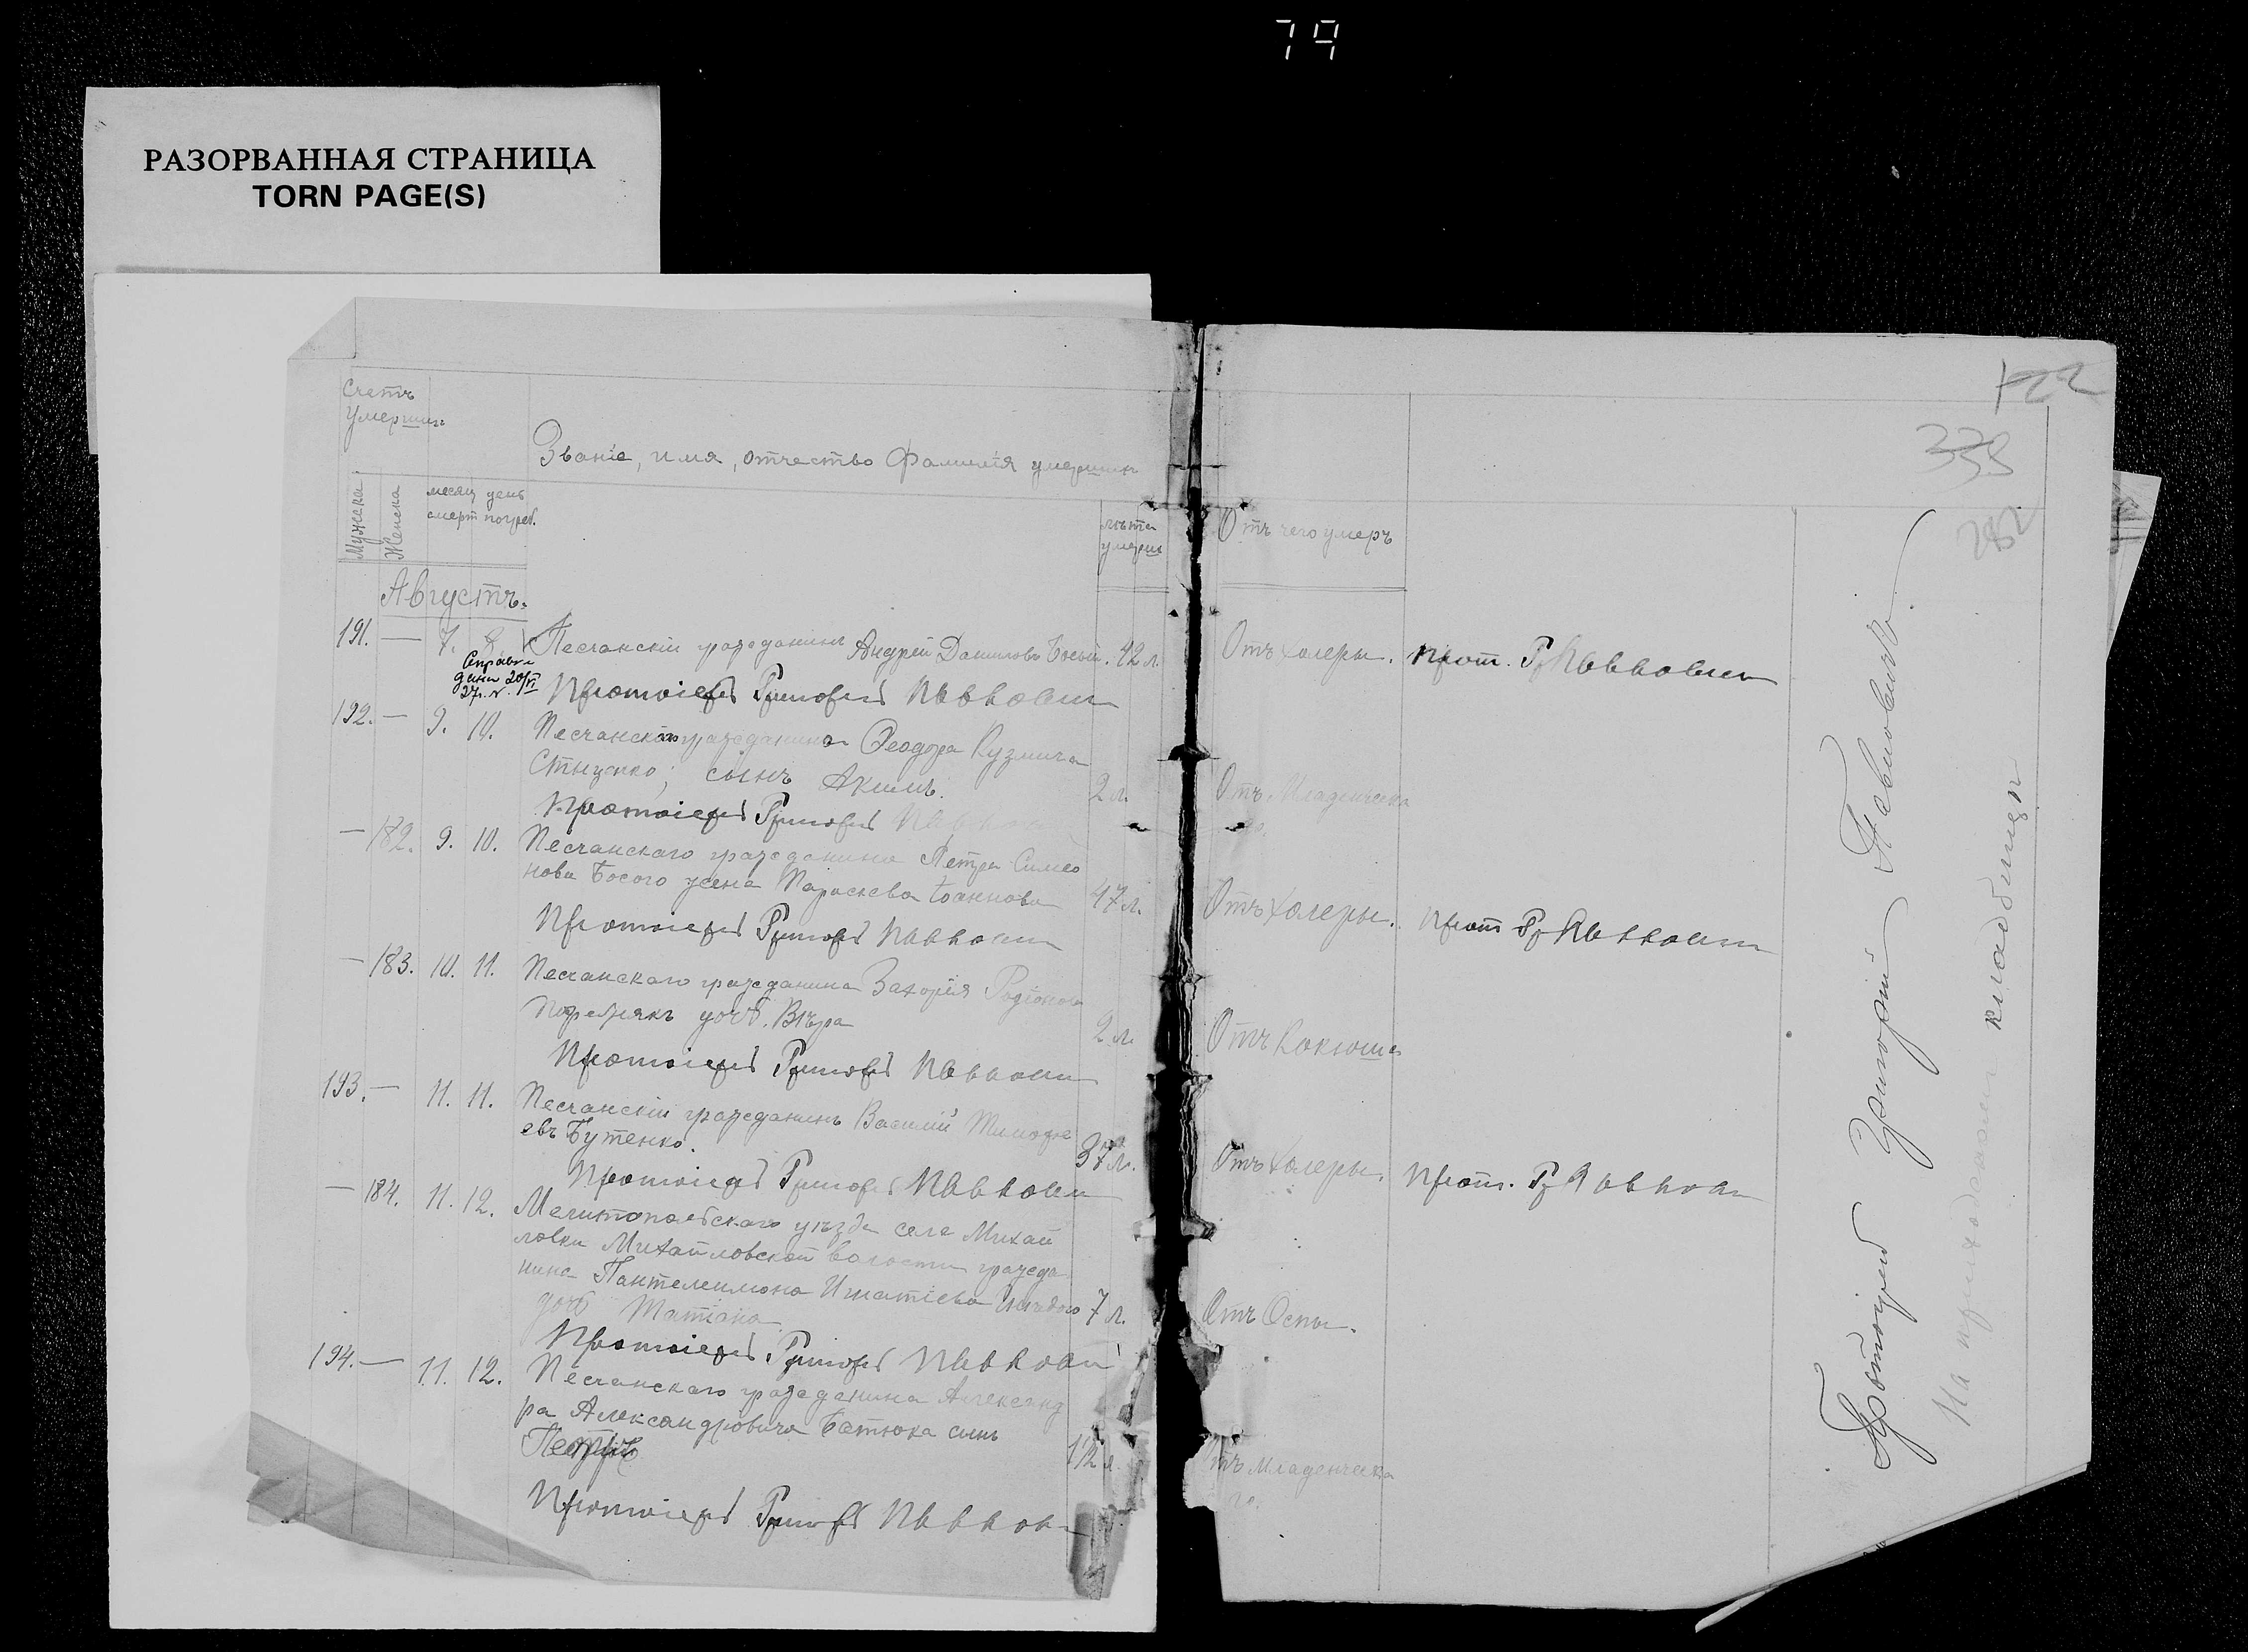 79
РАЗОРВАННАЯ СТРАНИЦА
TORN PAGE(S)
122
338
282
Счетъ
умерших
Званіе, имя, отчество фамилія умерших
Мужска
Женска
месяц день
смерт погреб.
лѣта
умерш
Отъ чего умеръ
Августъ.
191. — 7. 8. Песчанскій гражданинъ Андрей Даниловъ Босый. 42 л. Отъ холеры. Прот. Гр Павловскій
Справка
дана 20/VI
27 г. №
Протоіерей Григорій
192. — 9. 10. Песчанскаго гражданина Феодора Кузмича
сынъ Акимъ. 2 л. Отъ Младенческа
го.
Протоіерей Григорій
— 182. 9. 10. Песчанскаго гражданина Петра Симео
нова Босого жена Параскева Іоаннова 47 л. Отъ холеры. Прот Гр
Протоіерей Григорій
— 183. 10. 11. Песчанскаго гражданина Захарія Родіонова
дочь Вѣра 2 л. Отъ Коклюша
Протоіерей Григорій
193. — 11. 11. Песчанскій гражданинъ Василій Тимофе
евъ Бутенко. 37 л. Отъ холеры. Прот. Гр
Протоіерей Григорій
— 184. 11. 12. Мелитопольскаго уѣзда села Михай
ловки Михайловской волости гражда
нина Пантелеимона Игнатіева 7 л. Отъ Оспы.
дочь Татіана
Протоіерей Григорій
194. — 11. 12. Песчанскаго гражданина Александ
ра Александровича Батюка сынъ
1/2 л. Отъ Младенческа
го.
Протоіерей Григорій
Протоіерей Григорій
На приходскомъ кладбищѣ